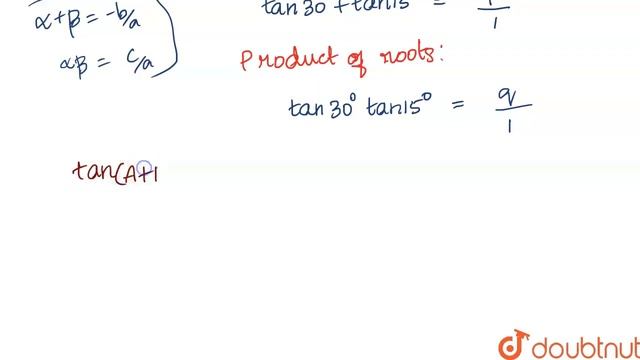 α+β = -b/a
tan30 + tan15 =
1
αβ = c/a
Product of roots:
tan30° tan15° = q/1
tan(A+
doubtnut